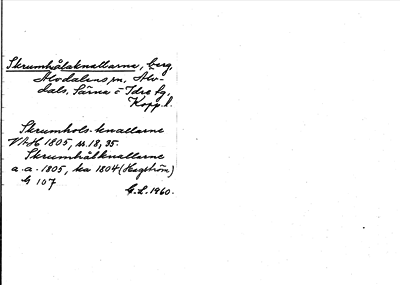 Skrumhålaknallarne, berg,
Älvdalens sn, Älv-
dals, Särna o Idre tg,
Kopp. l.
Skrumhols-knallarne
VAH 1805, s. 18, 35.
Skrumhålknallarne
a.a. 1805, ka 1804 (Hagström)
G 107
G.L. 1960.